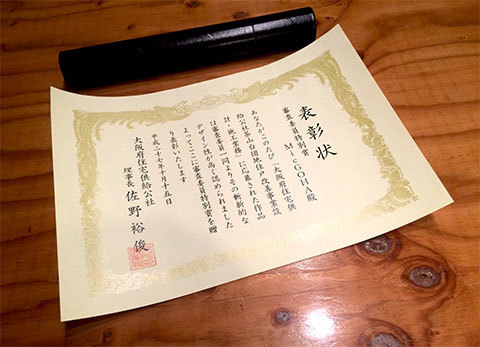 表彰状
審査委員特別賞 MicGOHA殿
あなたがこのたび「大阪府住宅供
給公社茶山台団地住戸改善事業設
計・施工業務」に応募された作品
は審査委員一同よりその斬新的な
デザイン性が高く認められました
よってここに審査委員特別賞を贈
り表彰いたします
平成二十七年十月十五日
大阪府住宅供給公社
理事長 佐野裕俊